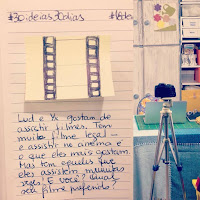 #30ideias30dias #Veder
Lud e Ya gostam de
assistir filmes. Tem
muito filme legal –
e assistir no cinema é
o que eles mais gostam.
Mas tem aqueles que
eles assistem muuuitas
vezes. E você? Qual é
seu filme preferido?